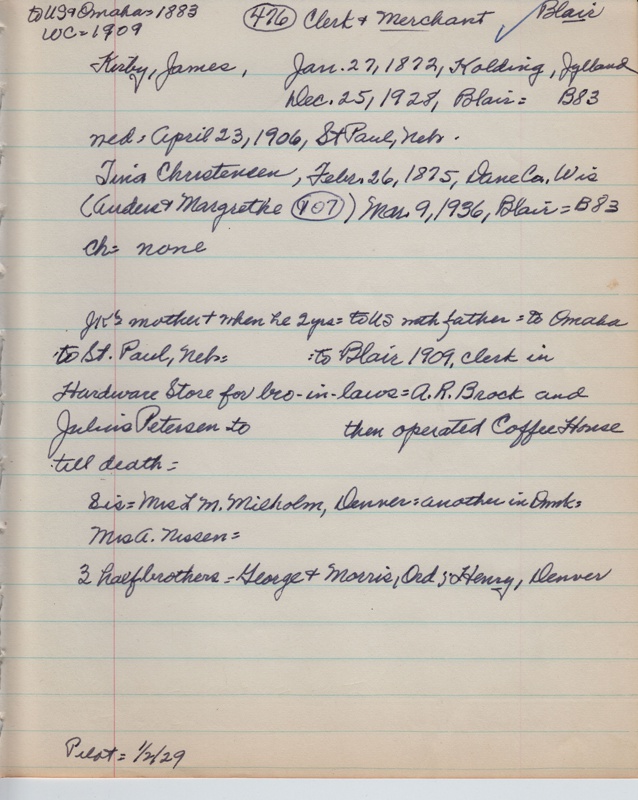 to US & Omaha = 1883 (476) Clerk & Merchant ✓ Blair
WC = 1909
Kirby, James, Jan. 27, 1872, Kolding, Jylland
Dec. 25, 1928, Blair = B83
med = April 23, 1906, St Paul, Nebr.
Tina Christensen, Febr. 26, 1875, Dane Co. Wis
(Anders & Margrethe (407)) Mar. 9, 1936, Blair = B83
ch = none
JK's mother + when he 2 yrs = to US with father = to Omaha
:to St. Paul, Nebr = :to Blair 1909, clerk in
Hardware Store for bro-in-laws = A.R. Brock and
Julius Petersen to then operated Coffee House
till death =
Sis = Mrs L M. Milholm, Denver = another in Dmk =
Mrs A. Nissen =
3 half brothers = George & Morris, Ord; & Henry, Denver
Pilot = 1/2/29